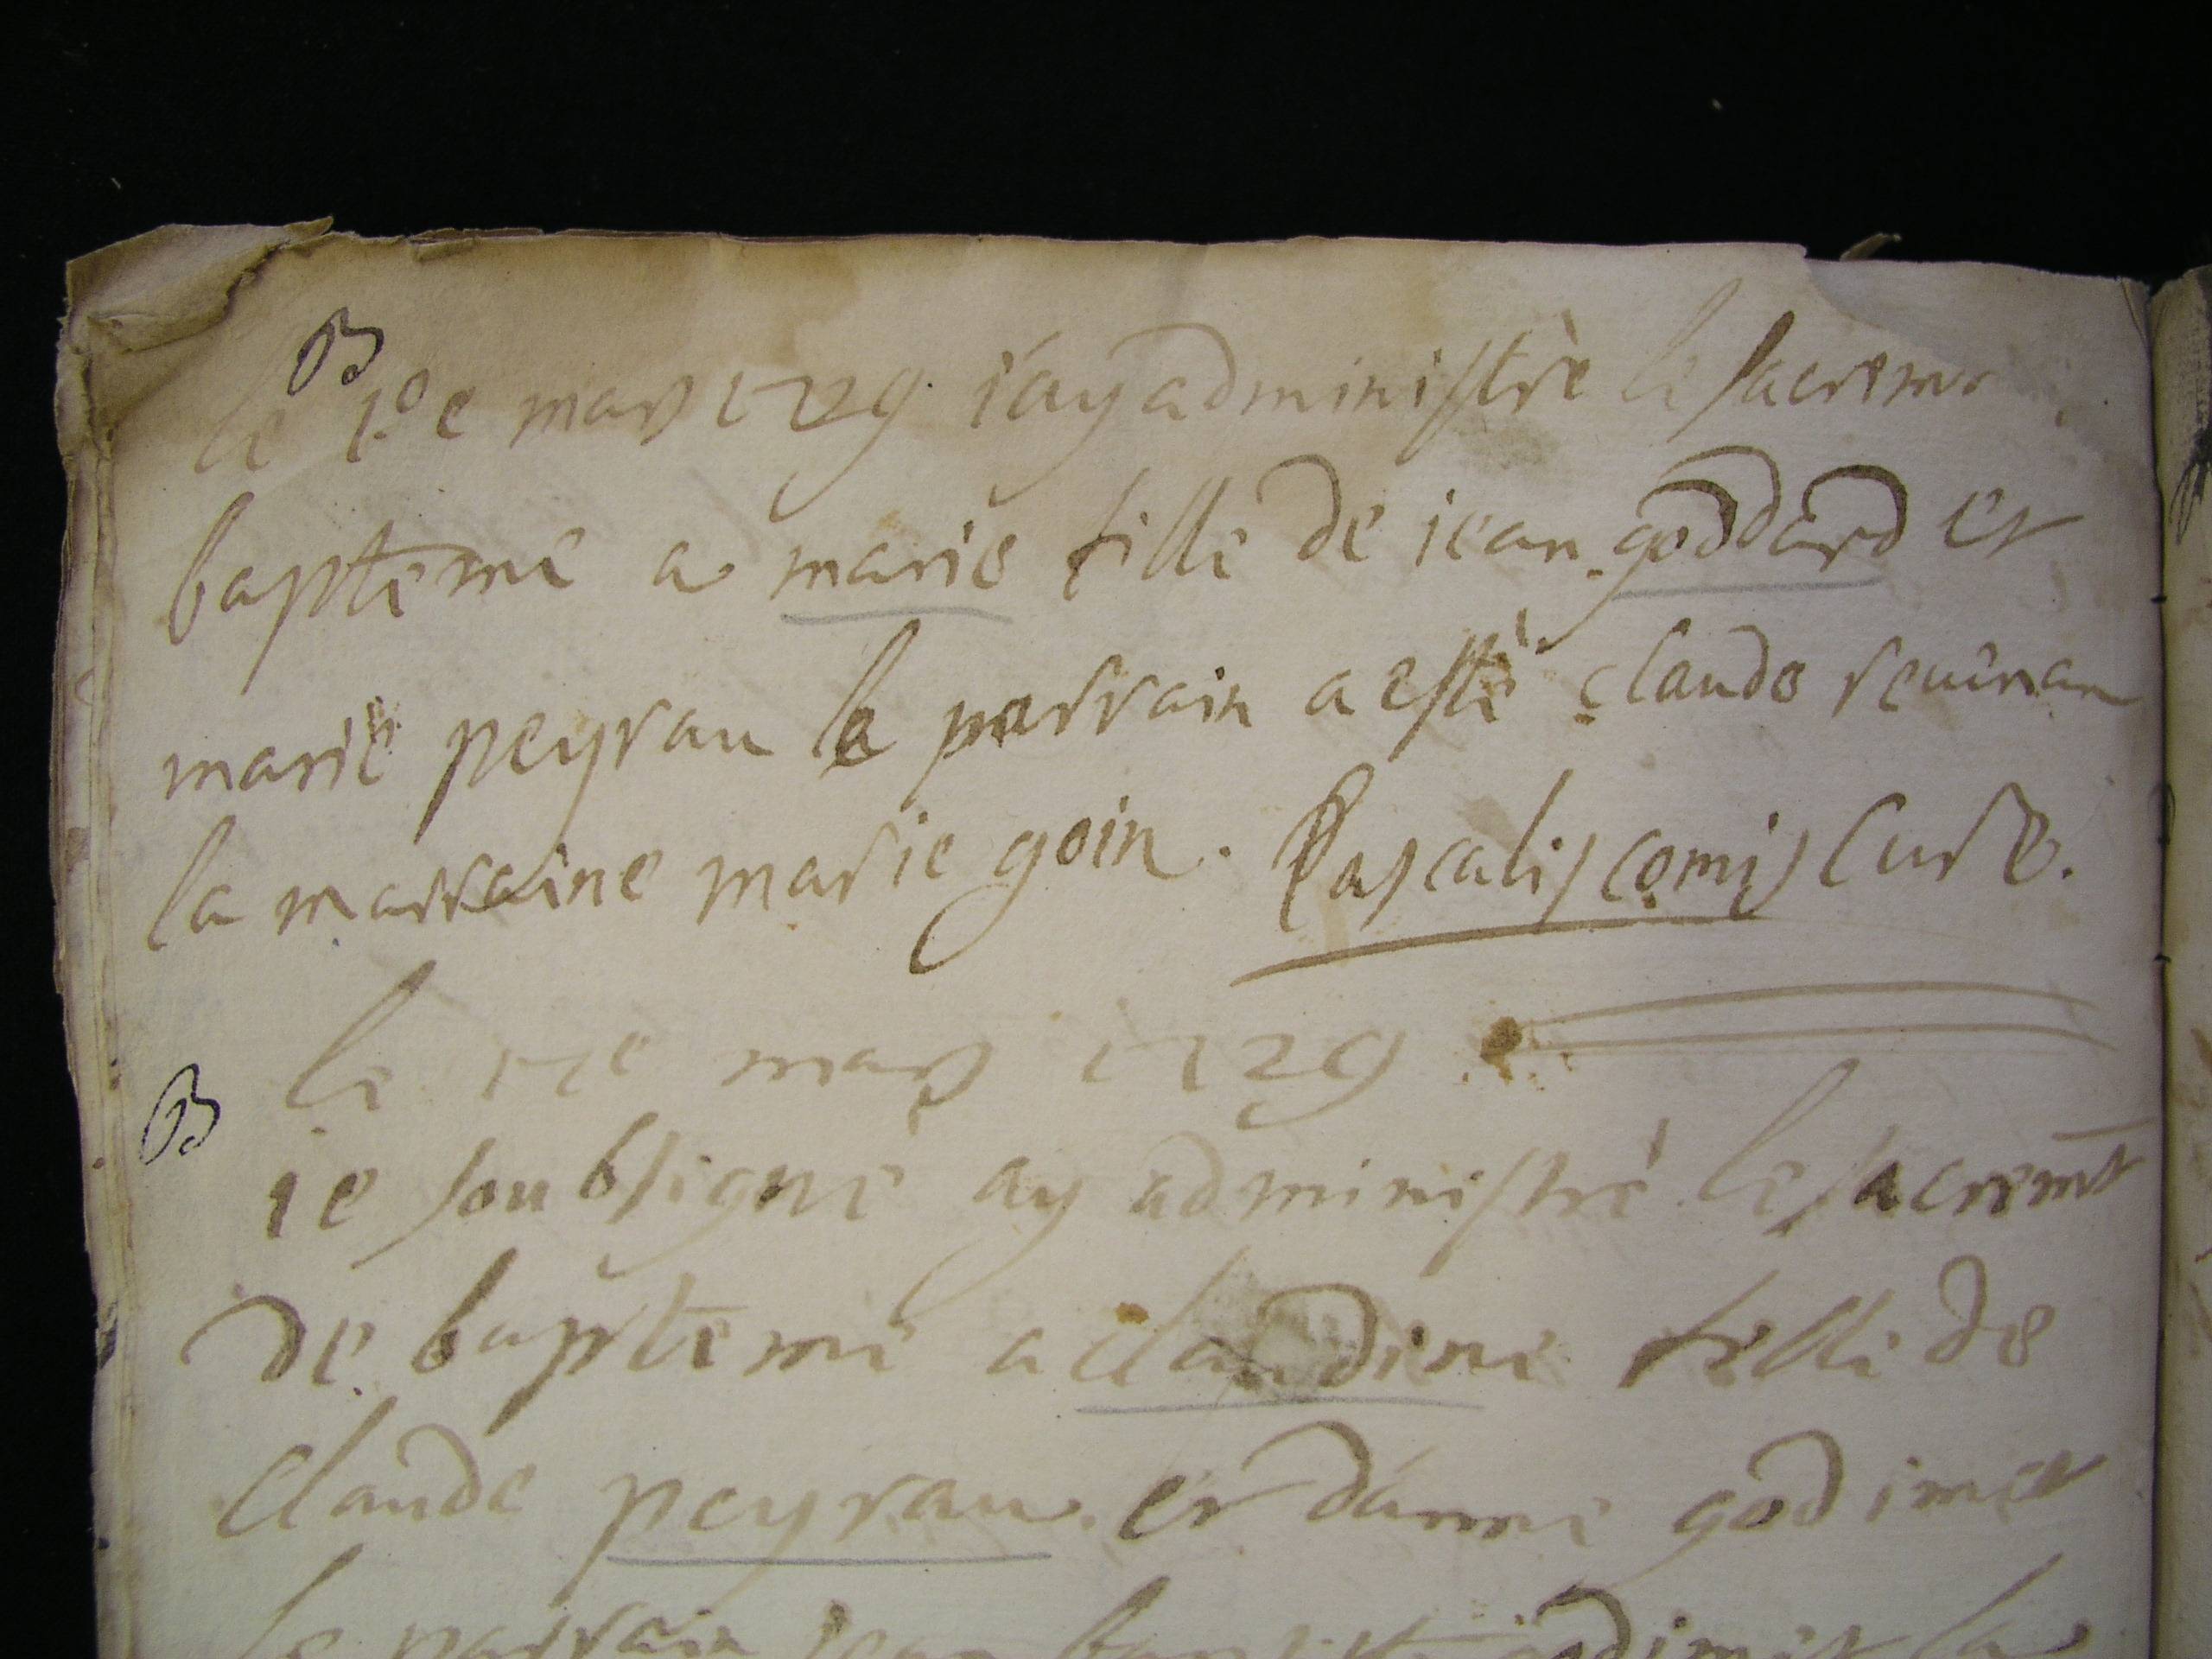 B
le 1.e may 1729 i'ay administrè le sacremt
bapteme a marie fille de iean goddard et
marie peyrau le parrain a estè claude reuinan
la marraine marie goin. Pascalis comis curè.
le 17e may 1729
B
ie soubsigné ay administré le sacremt
de bapteme a claudine fille de
claude peyrau. et d'anne godimet
le parrain iean godimet la